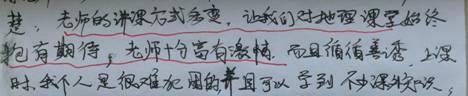 楚，老师的讲课方式多变，让我们对地理课堂始终
抱有期待，老师十分富有激情，而且循循善诱，上课
时，我个人是很难犯困的并且可以学到不少课外知识，